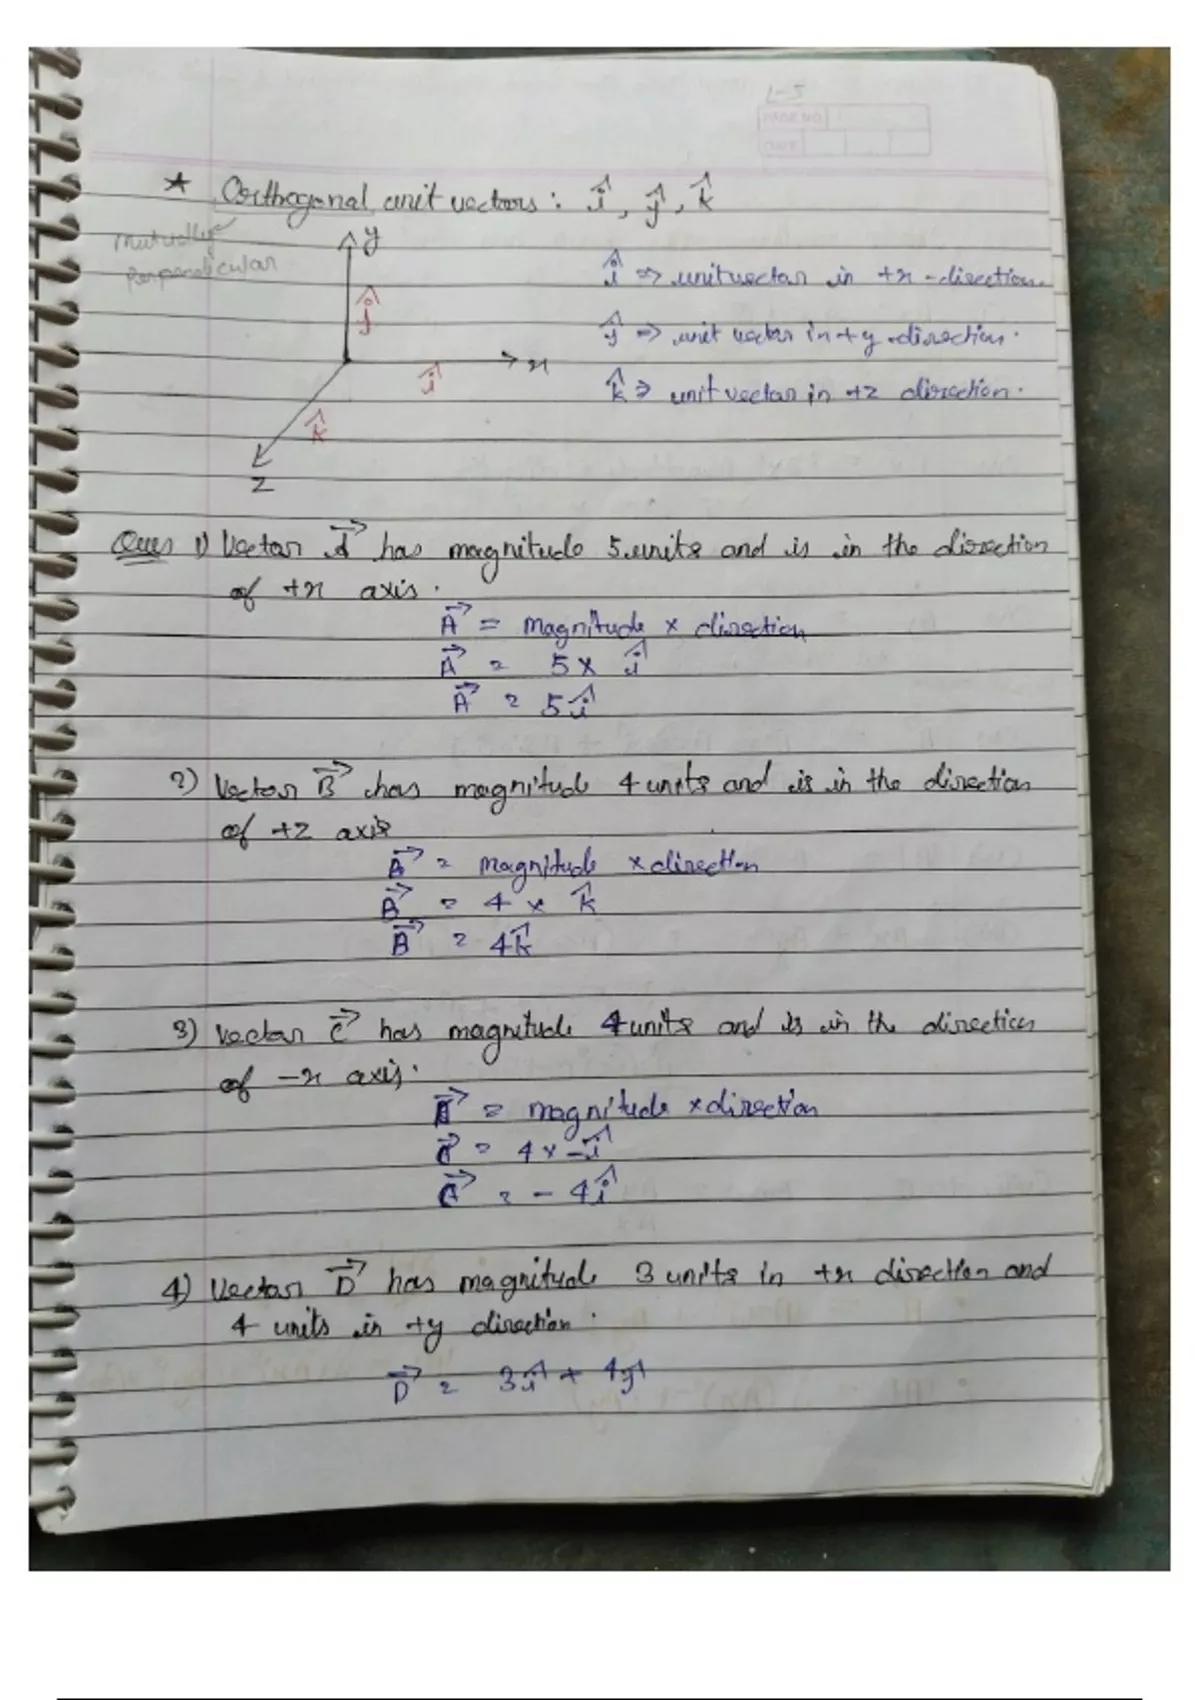 L-5
PAGE NO
DATE
* Orthogonal unit vectors : î, ĵ, k̂
Mutually
Perpendicular
y
ĵ
x
î
k̂
z
î => unit vector in +x -direction.
ĵ => unit vector in +y -direction.
k̂ => unit vector in +z direction.
Ques 1) Vector A⃗ has magnitude 5 units and is in the direction
of +x axis.
A⃗ = magnitude × direction
A⃗ = 5 × î
A⃗ = 5î
2) Vector B⃗ has magnitude 4 units and is in the direction
of +z axis
B⃗ = magnitude × direction
B⃗ = 4 × k̂
B⃗ = 4k̂
3) Vector C⃗ has magnitude 4 units and is in the direction
of -x axis.
= magnitude × direction
C⃗ = 4 × -î
C⃗ = - 4î
4) Vector D⃗ has magnitude 3 units in +x direction and
4 units in +y direction.
D⃗ = 3î + 4ĵ